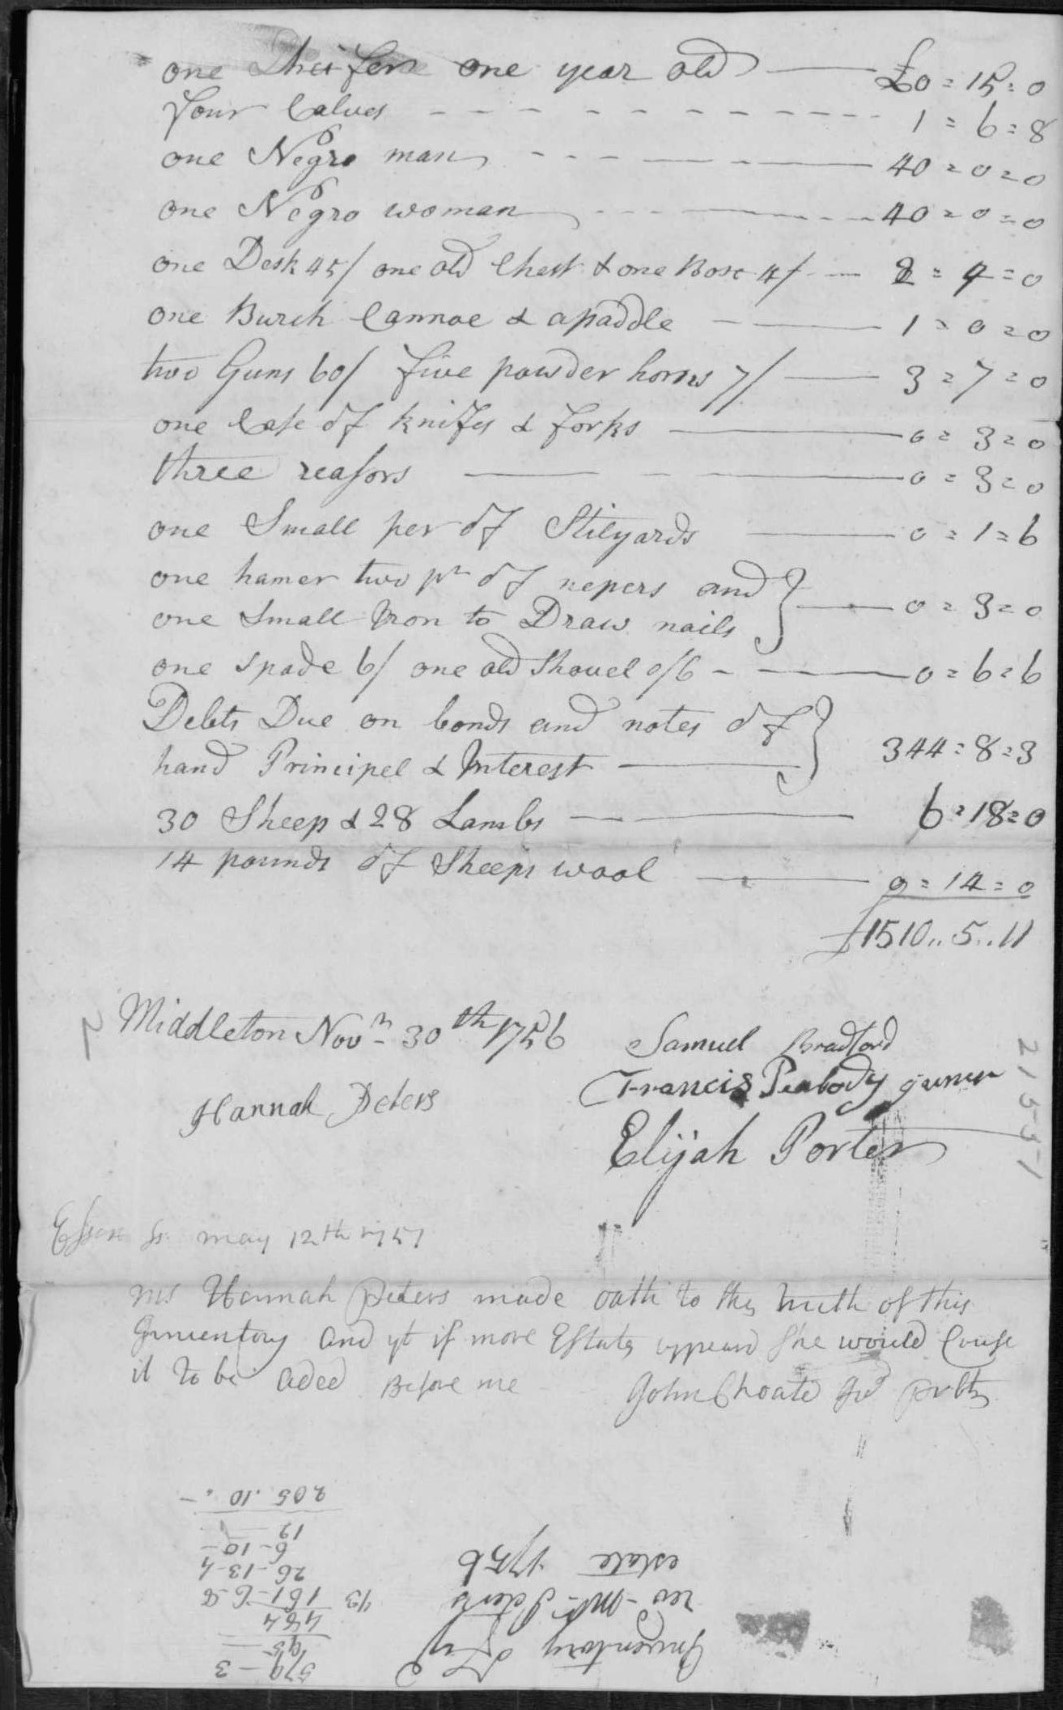 one heifer one year old £0=15=0
four Calves 1=6=8
one Negro man 40=0=0
one Negro woman 40=0=0
one Desk 45/ one old Chest & one Box 4/ 2=9=0
one Burch Cannoe & a paddle 1=0=0
two Guns 60/ five powder horns 7/ 3=7=0
one Case of knifes & forks 0=3=0
three reasors 0=3=0
one Small per of Stilyards 0=1=6
one hamer two pr of nepers and
one Small Iron to Draw nails 0=3=0
one spade 6/ one old Shovel 0/6 0=6=6
Debts Due on bonds and notes of
hand Principel & Interest 344=8=3
30 Sheep & 28 Lambs 6=18=0
14 pounds of Sheeps wool 0=14=0
£1510..5..11
2
Middleton Novm 30th 1756
Samuel Bradford
Francis Peabody juner
Hannah Peters
Elijah Porter
21531
Essex Ss. may 12th 1757
Ms Hannah Peters made oath to the truth of this
Inventory and yt if more Estate appeard She would Cause
it to be aded Before me John Choate Jud Prbte
205.10.-
12
6-10-
26-13-4
161-6-8 13
484
95
579-3
Inventory of ye
rev- Mr- Peters
estate 1756